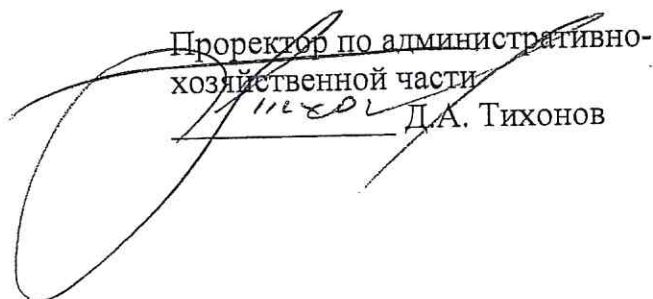 Проректор по административно-
хозяйственной части
Д.А. Тихонов